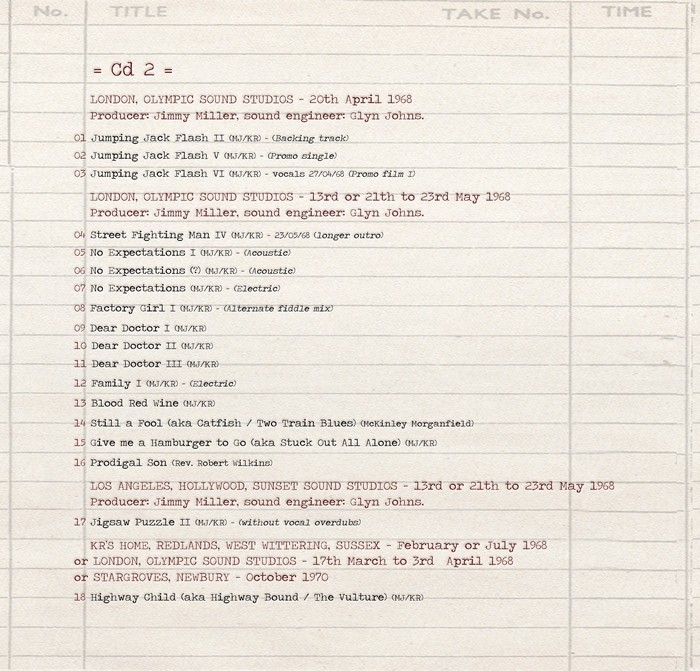 No. TITLE TAKE No. TIME
= Cd 2 =
LONDON, OLYMPIC SOUND STUDIOS - 20th April 1968
Producer: Jimmy Miller, sound engineer: Glyn Johns.
01 Jumping Jack Flash II (MJ/KR) - (Backing track)
02 Jumping Jack Flash V (MJ/KR) - (Promo single)
03 Jumping Jack Flash VI (MJ/KR) - vocals 27/04/68 (Promo film I)
LONDON, OLYMPIC SOUND STUDIOS - 13rd or 21th to 23rd May 1968
Producer: Jimmy Miller, sound engineer: Glyn Johns.
04 Street Fighting Man IV (MJ/KR) - 23/05/68 (longer outro)
05 No Expectations I (MJ/KR) - (Acoustic)
06 No Expectations (?) (MJ/KR) - (Acoustic)
07 No Expectations (MJ/KR) - (Electric)
08 Factory Girl I (MJ/KR) - (Alternate fiddle mix)
09 Dear Doctor I (MJ/KR)
10 Dear Doctor II (MJ/KR)
11 Dear Doctor III (MJ/KR)
12 Family I (MJ/KR) - (Electric)
13 Blood Red Wine (MJ/KR)
14 Still a Fool (aka Catfish / Two Train Blues) (McKinley Morganfield)
15 Give me a Hamburger to Go (aka Stuck Out All Alone) (MJ/KR)
16 Prodigal Son (Rev. Robert Wilkins)
LOS ANGELES, HOLLYWOOD, SUNSET SOUND STUDIOS - 13rd or 21th to 23rd May 1968
Producer: Jimmy Miller, sound engineer: Glyn Johns.
17 Jigsaw Puzzle II (MJ/KR) - (without vocal overdubs)
KR'S HOME, REDLANDS, WEST WITTERING, SUSSEX - February or July 1968
or LONDON, OLYMPIC SOUND STUDIOS - 17th March to 3rd April 1968
or STARGROVES, NEWBURY - October 1970
18 Highway Child (aka Highway Bound / The Vulture) (MJ/KR)